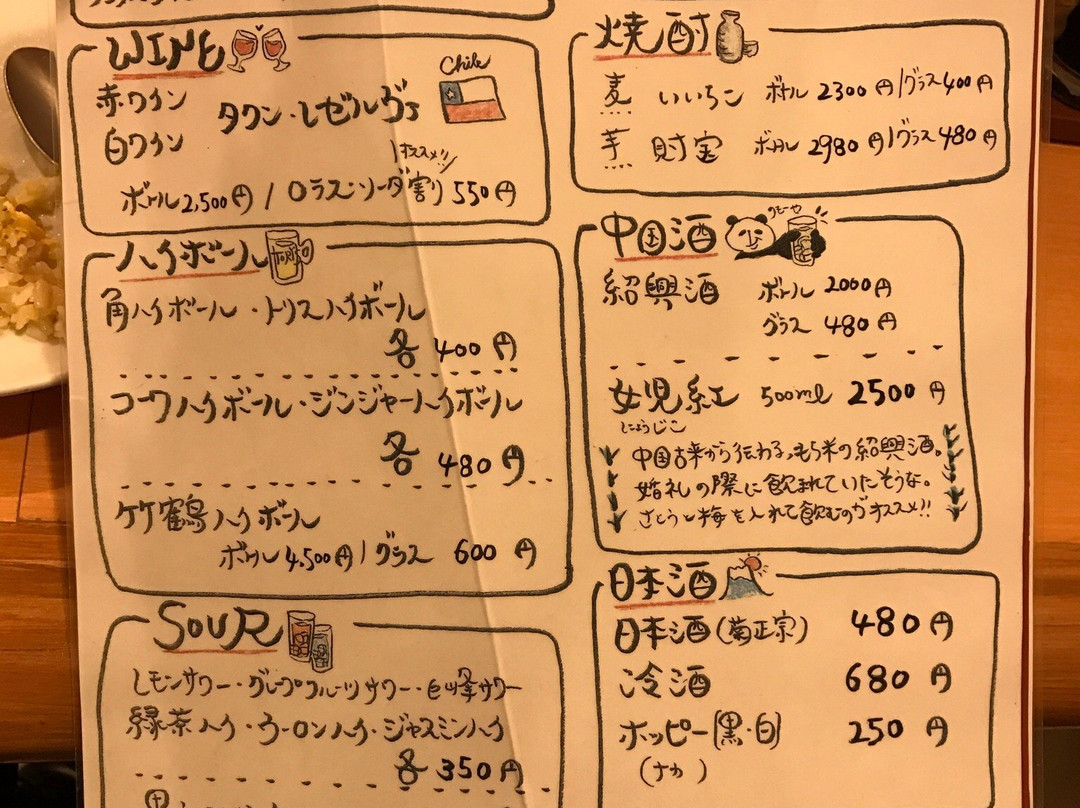 WINE
Chile
赤ワイン
タウン・レゼルヴァ
白ワイン
オススメ!!
ボトル 2,500円 / グラス・ソーダ割り 550円
ハイボール
角ハイボール・トリスハイボール
各 400円
コークハイボール・ジンジャーハイボール
各 480円
竹鶴ハイボール
ボトル 4,500円 / グラス 600円
SOUR
レモンサワー・グレープフルーツサワー・巨峰サワー
緑茶ハイ・ウーロンハイ・ジャスミンハイ
各 350円
焼酎
麦 いいちこ ボトル 2300円 / グラス 400円
芋 財宝 ボトル 2980円 / グラス 480円
中国酒
紹興酒 ボトル 2000円
グラス 480円
女児紅 500ml 2500円
中国古来から伝わる、もち米の紹興酒。
婚礼の際に飲まれていたそうな。
さとうと梅を入れて飲むのがオススメ!!
日本酒
日本酒(菊正宗) 480円
冷酒 680円
ホッピー[黒・白] 250円
(ナカ)